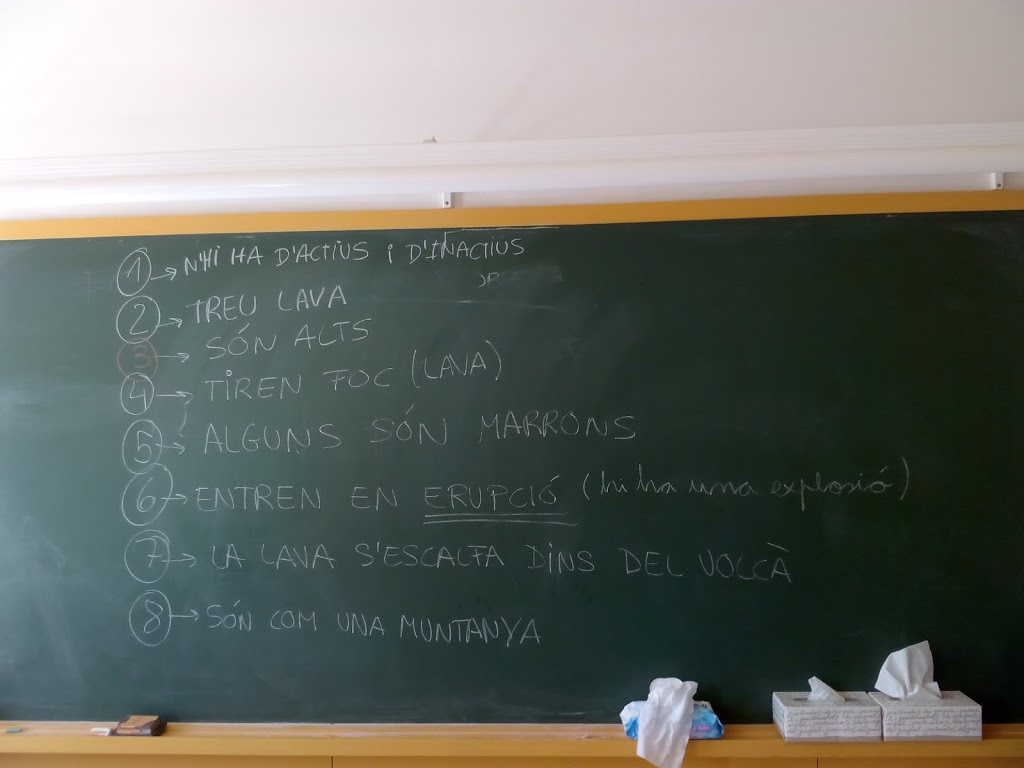 1 → N'HI HA D'ACTIUS i D'INACTIUS
2 → TREU LAVA
3 → SÓN ALTS
4 → TIREN FOC (LAVA)
5 → ALGUNS SÓN MARRONS
6 → ENTREN EN ERUPCIÓ (hi ha una explosió)
7 → LA LAVA S'ESCALFA DINS DEL VOLCÀ
8 → SÓN COM UNA MUNTANYA